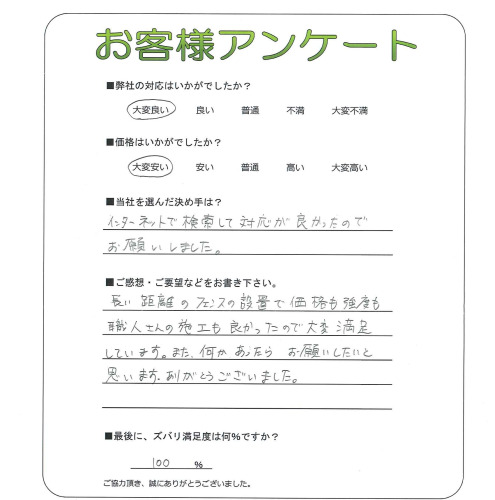 お客様アンケート
■弊社の対応はいかがでしたか？
大変良い 良い 普通 不満 大変不満
■価格はいかがでしたか？
大変安い 安い 普通 高い 大変高い
■当社を選んだ決め手は？
インターネットで検索して対応が良かったので
お願いしました。
■ご感想・ご要望などをお書き下さい。
長い距離のフェンスの設置で価格も強度も
職人さんの施工も良かったので大変満足
しています。また、何かあったら お願いしたいと
思います。ありがとうございました。
■最後に、ズバリ満足度は何%ですか？
100 %
ご協力頂き、誠にありがとうございました。